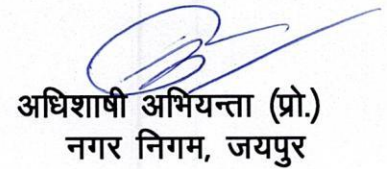 अधिशाषी अभियन्ता (प्रो.)
नगर निगम, जयपुर